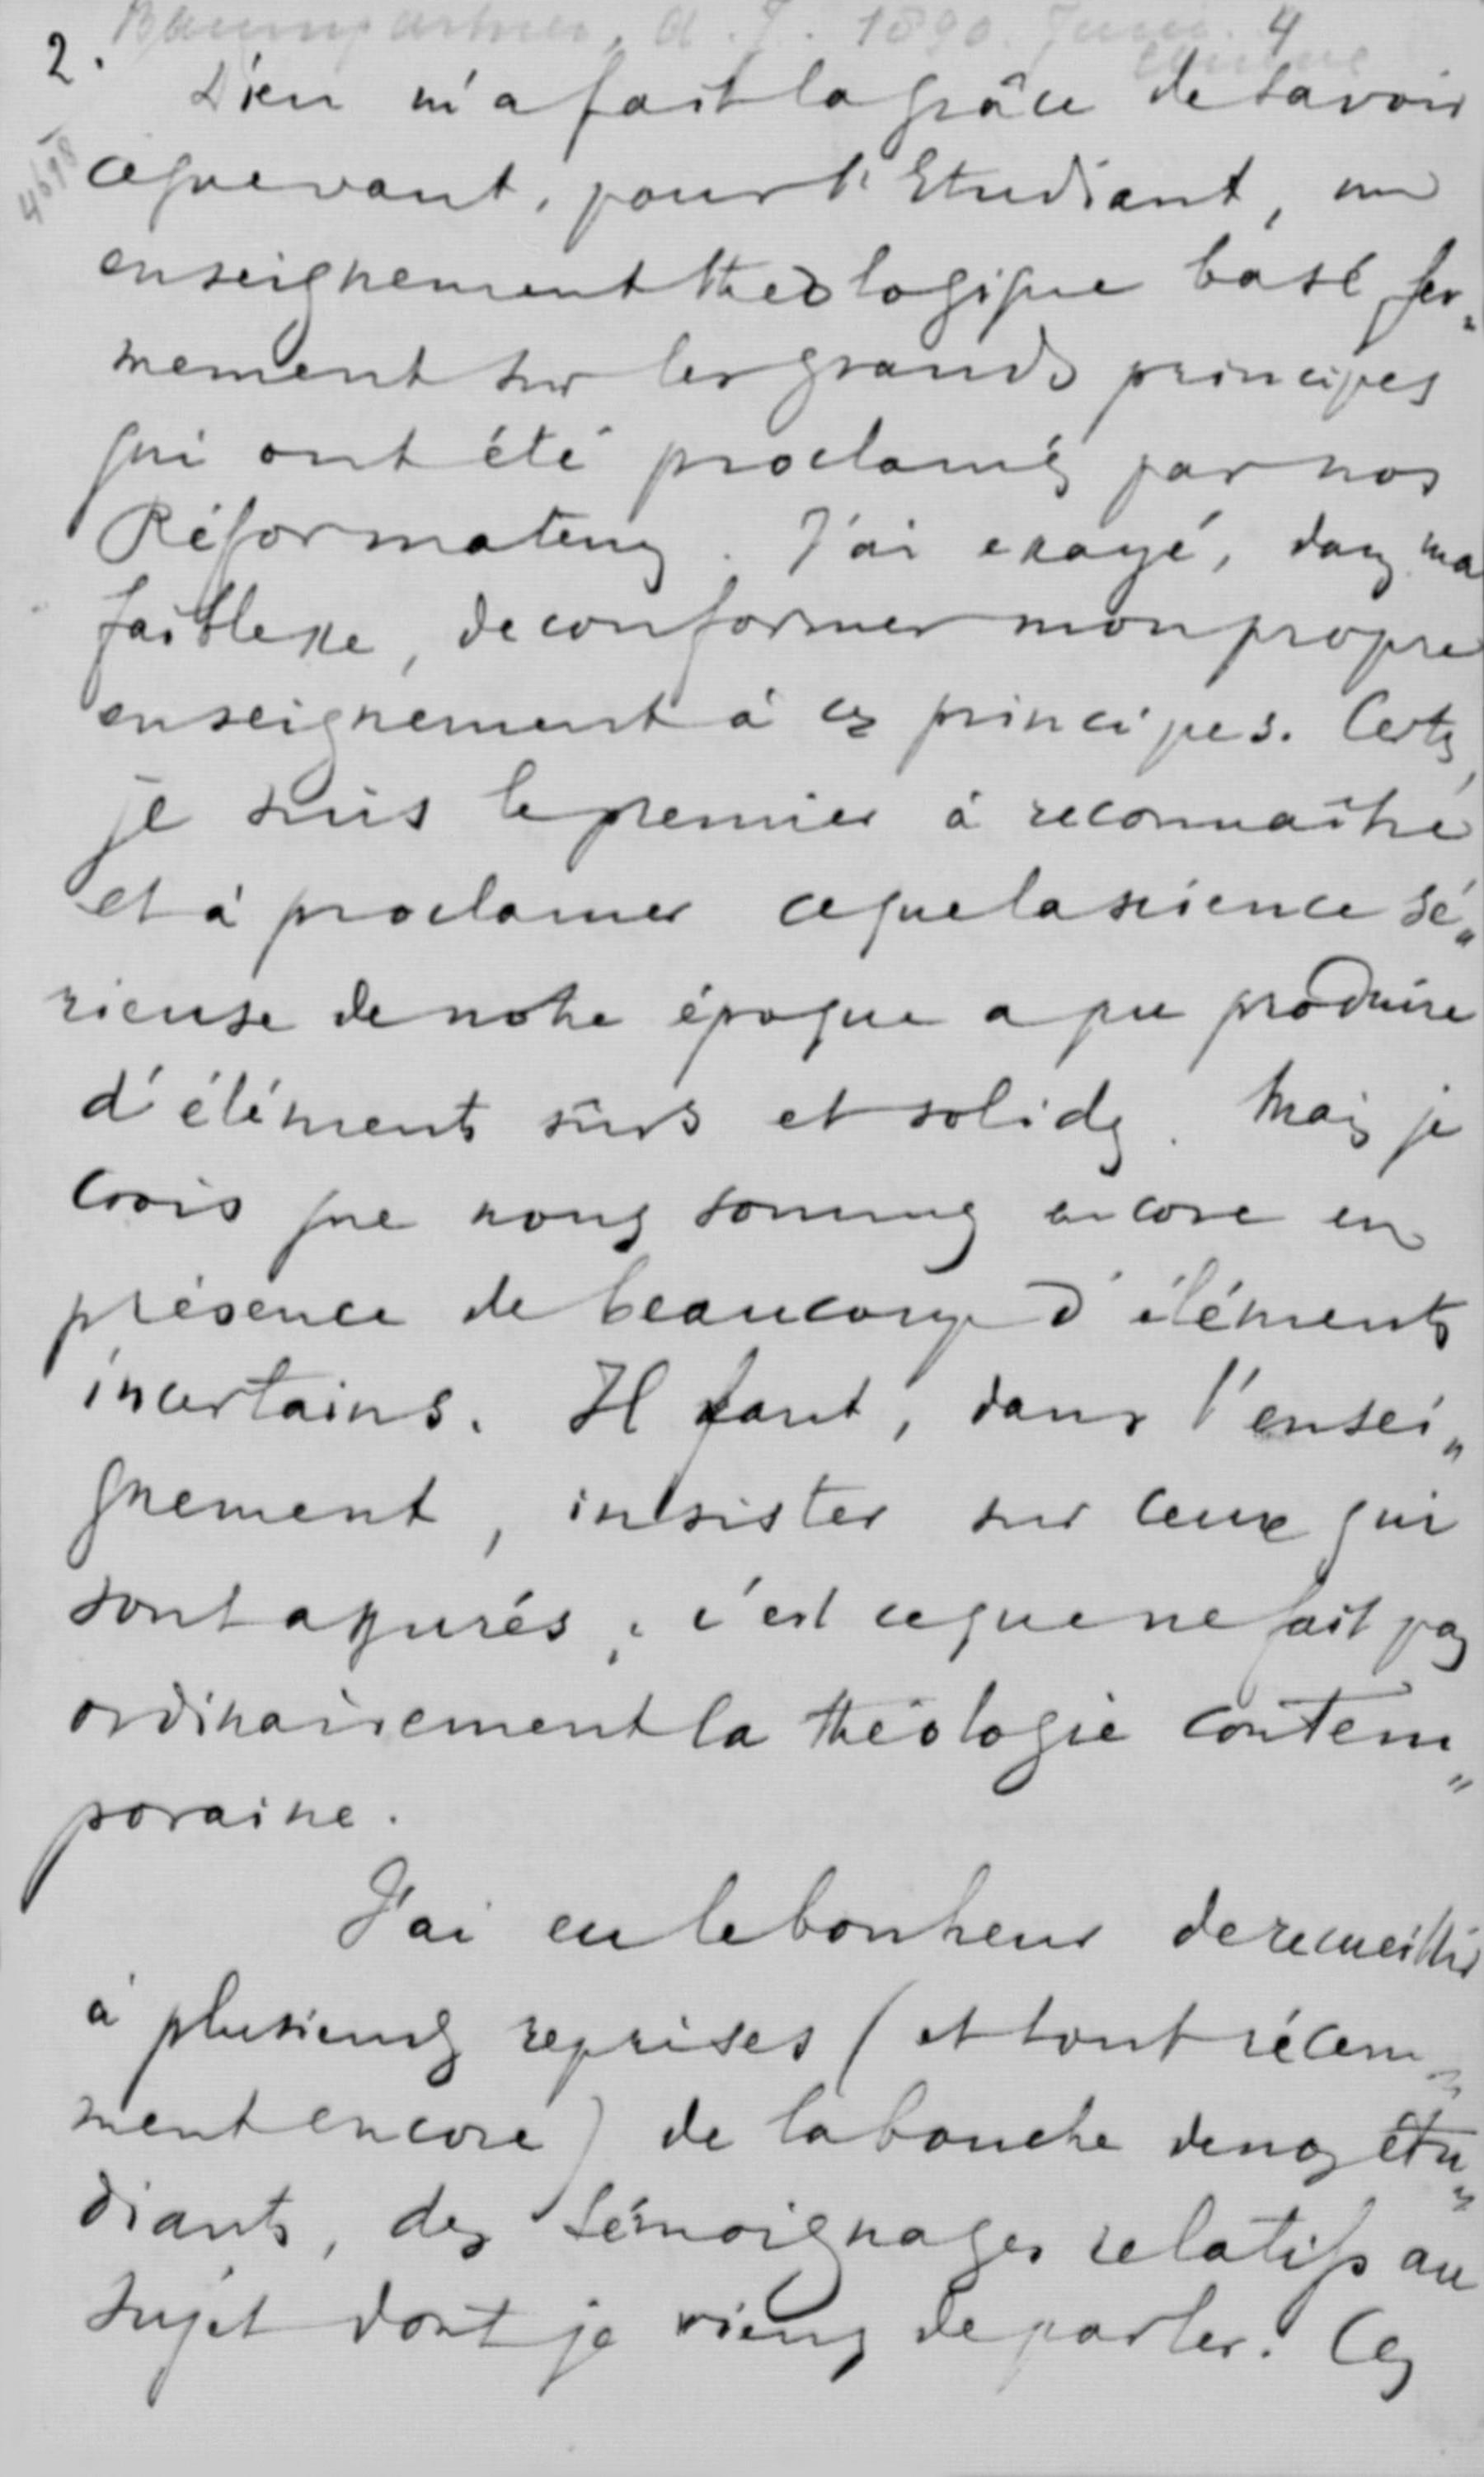 Baumgartner, A. J. 1890. Juni. 4
2.
4698
Dieu m'a fait la grâce de savoir
ce que vaut, pour l'Etudiant, un
enseignement théologique basé fer„
mement sur les grands principes
qui ont été proclamés par nos
Réformateurs. J'ai essayé, dans ma
faiblesse, de conformer mon propre
enseignement à ces principes. Certes,
je suis le premier à reconnaître
et à proclamer ce que la science sé„
rieuse de notre époque a pu produire
d'éléments sûrs et solides. Mais je
crois que nous sommes encore en
présence de beaucoup d'éléments
incertains. Il faut, dans l'ensei„
gnement, insister sur ceux qui
sont assurés; c'est ce que ne fait pas
ordinairement la théologie contem„
poraine.
J'ai eu le bonheur de recueillir
à plusieurs reprises (et tout récem„
ment encore) de la bouche de nos étu„
diants, des témoignages relatifs au
sujet dont je viens de parler. Ces